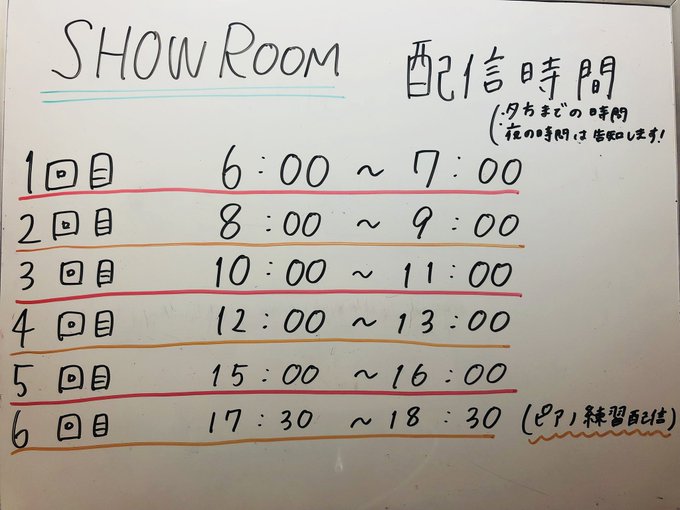 SHOWROOM 配信時間
(・夕方までの時間
・夜の時間は告知します!
1回目 6:00 ~ 7:00
2回目 8:00 ~ 9:00
3回目 10:00 ~ 11:00
4回目 12:00 ~ 13:00
5回目 15:00 ~ 16:00
6回目 17:30 ~ 18:30 (ピアノ練習配信)